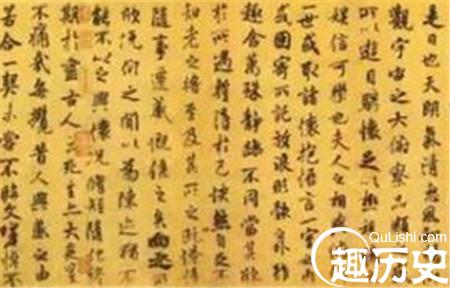 是日也天朗氣清惠風
觀宇宙之大俯察品類
所以遊目騁懷足以極視
娛信可樂也夫人之相與
一世或取諸懷抱悟言一室之
或因寄所託放浪形骸之外
趣舍萬殊靜躁不同當其欣
於所遇蹔得於己快然自足不
知老之將至及其所之既惓情
隨事遷感慨係之矣向之所
欣俛仰之間以為陳迹猶不
能不以之興懷況脩短隨
期於盡古人云死生亦大矣豈
不痛哉每攬昔人興感之由
若合一契未嘗不臨文嗟悼不
QuLiShi.com
趣历史